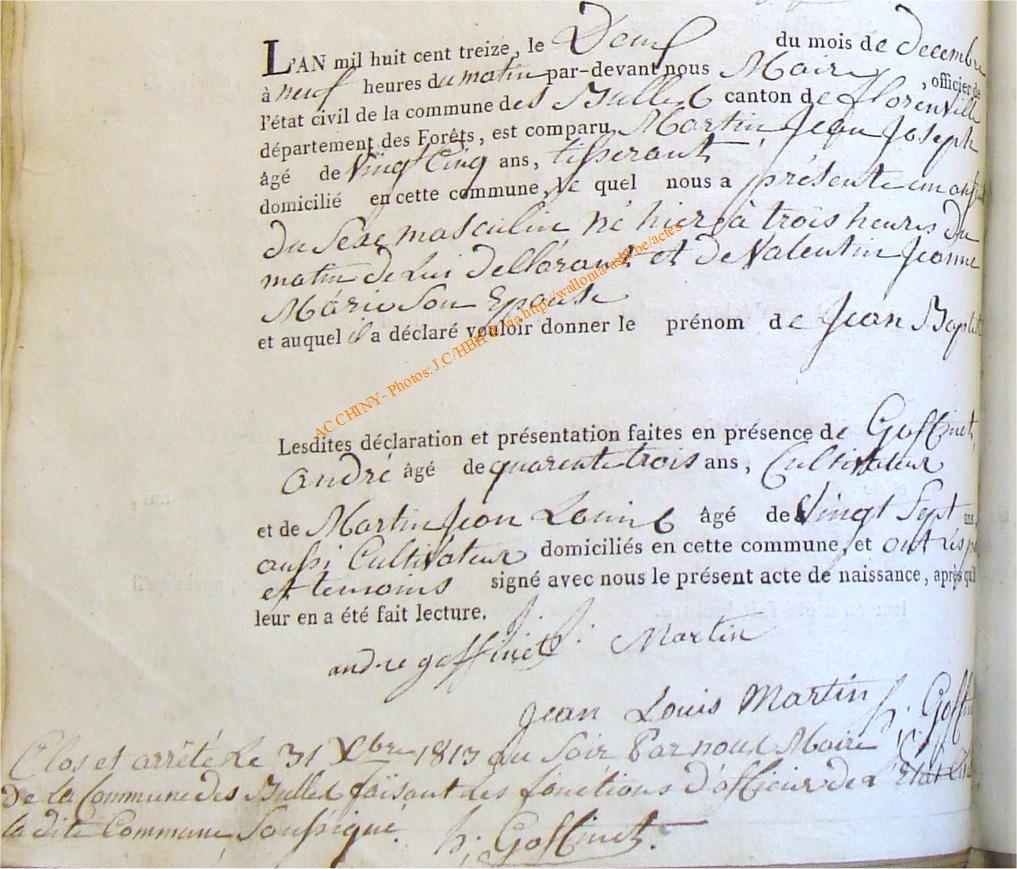 L'AN mil huit cent treize, le Deux du mois de decembre
à neuf heures du matin par-devant nous Maire, officier de
l'état civil de la commune des Bulles canton de florenville
département des Forêts, est comparu Martin Jean Joseph
âgé de Vingt Cinq ans, tisserant
domicilié en cette commune, le quel nous a présenté un enfant
du Sexe masculin né hier à trois heures du
matin de Lui déClarant et de Valentin Jeanne
Marie Son Epouse
et auquel il a déclaré vouloir donner le prénom de Jean Baptiste
AC CHINY - Photos: J C/HBH via http://wallonia-asbl.be/actes
Lesdites déclaration et présentation faites en présence de Goffinet
André âgé de quarente trois ans, Cultivateur
et de Martin Jean Louis âgé de Vingt Sept ans
aussi Cultivateur domiciliés en cette commune, et ont les
et temoins signé avec nous le présent acte de naissance, après qu'il
leur en a été fait lecture.
andre goffinet J. J. Martin
Jean Louis Martin h. Goffinet
Clos et arrêté le 31 Xbre 1813 au Soir Par nous Maire
De la Commune des Bulles faisant les fonctions d'officier de l'Etat Civil
la dite Commune Soussigné. h. Goffinet.